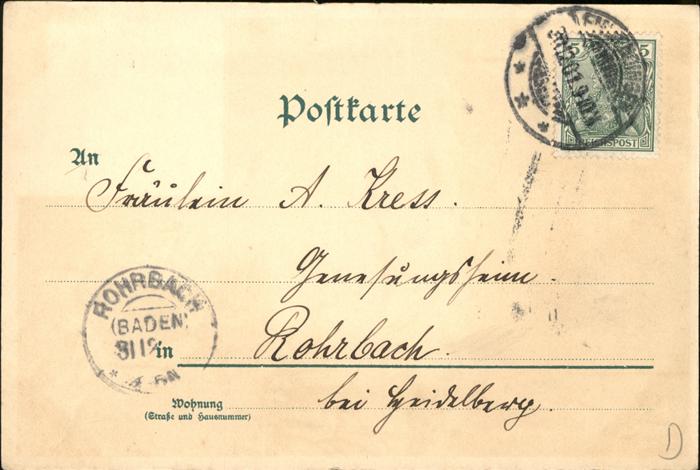 Postkarte
5 5
REICHSPOST
An
Fräulein A. Kress.
Genesungsheim.
ROHRBACH
(BADEN)
31 12
in Rohrbach.
Wohnung
(Straße und Hausnummer)
bei Heidelberg.
D